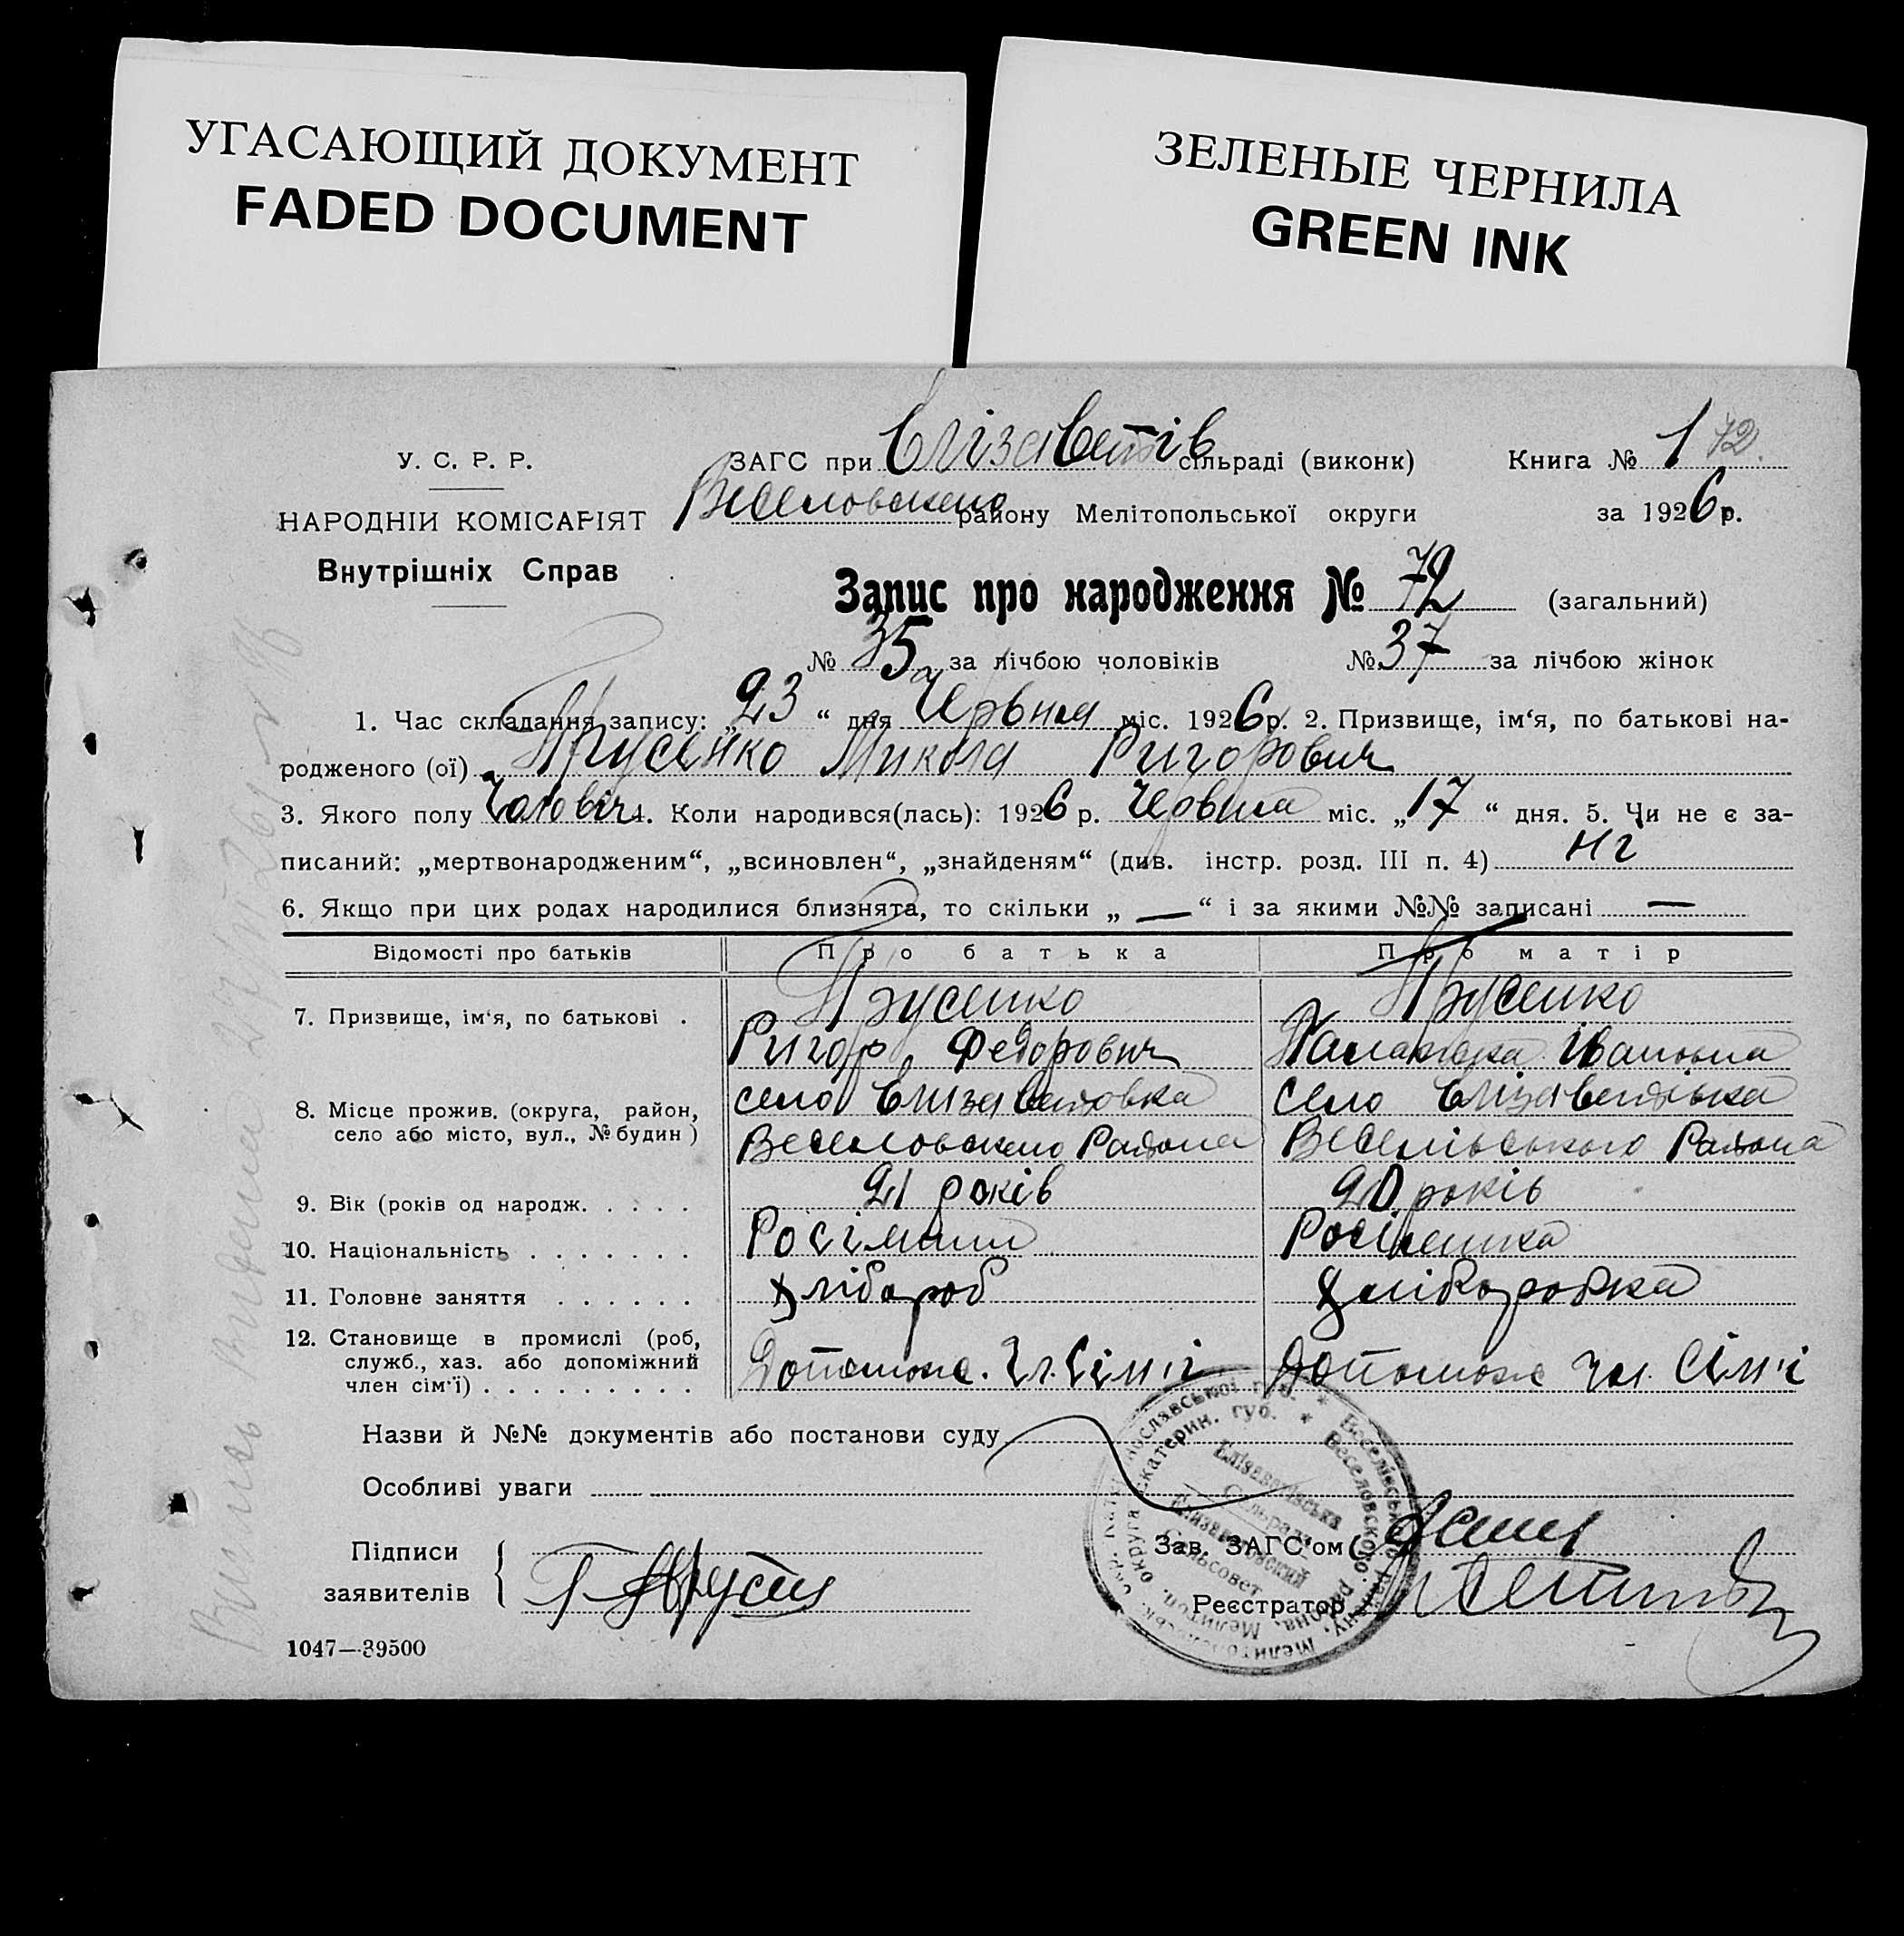 УГАСАЮЩИЙ ДОКУМЕНТ
FADED DOCUMENT
ЗЕЛЕНЫЕ ЧЕРНИЛА
GREEN INK
У. С. Р. Р.
НАРОДНІЙ КОМІСАРІЯТ
Внутрішніх Справ
ЗАГС при Єлізаветів сільраді (виконк) Книга № 1 72.
Веселовского району Мелітопольської округи за 1926 р.
Запис про народження № 72 (загальний)
№ 35 за лічбою чоловіків № 37 за лічбою жінок
1. Час складання запису: „23“ дня Червня міс. 1926 р. 2. Призвище, ім‘я, по батькові на-
родженого (ої) Прусенко Микола Ригорович
3. Якого полу Чоловіч 4. Коли народився(лась): 1926 р. Червня міс. „17“ дня. 5. Чи не є за-
писаний: „мертвонародженим“, „всиновлен“, „знайденям“ (див. інстр. розд. III п. 4) Ні
6. Якщо при цих родах народилися близнята, то скільки „ — “ і за якими №№ записані —
Відомості про батьків Про батька Про матір
7. Призвище, ім‘я, по батькові . Прусенко Прусенко
Ригор Федорович Палажка Івановна
8. Місце прожив. (округа, район, село Єлизаветовка село Єлізаветівка
село або місто, вул., № будин ) Веселовского Района Веселівського Района
9. Вік (років од народж. . . . . 21 років 20 років
10. Національність . . . . . . . Росіянин Росіянка
11. Головне заняття . . . . . . хлібороб хліборобка
12. Становище в промислі (роб,
служб., хаз. або допоміжний Допоможе. Чл. Сім'ї Допоможе Чл. Сім'ї
член сім'ї) . . . . . . . . .
Назви й №№ документів або постанови суду
Особливі уваги
Підписи
заявителів
Зав. ЗАГС'ом
Реєстратор
1047—39500